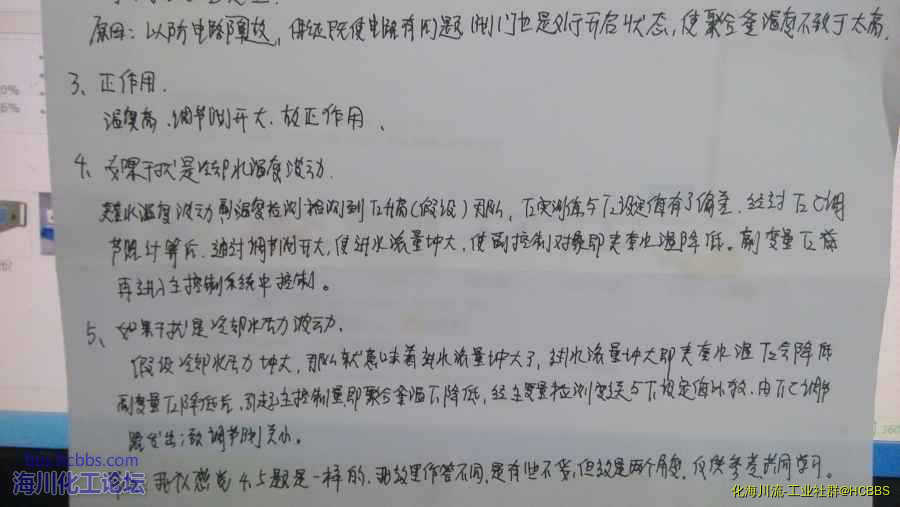 原因：以防电路障故，保证既使电路有问题 阀门也是处于开启状态，使聚合釜温度不致于太高.
3、正作用.
温度高、调节阀开大、故正作用、
4、如果干扰是冷却水温度波动.
夹套水温度波动 副温度检测检测到T2升高(假设) 那么，T2实测值与T2设定值有了偏差. 经过T2C调
节器计算后. 通过调节阀开大，使进水流量增大，使副控制对象即夹套水温降低。副变量T2
再进入主控制系统中控制。
5、如果干扰是冷却水压力波动.
假设冷却水压力增大，那么就意味着进水流量增大了，进水流量增大即夹套水温T2会降低
副变量T2降低后，引起主控制量即聚合釜温T1降低，经主变量检测变送与T1设定值比较. 由T1C调节
器发出 调节阀关小。
我感觉4.5题是一样的. 我这里作答不同，是有些不妥，但这是两个角度，仅供参考共同学习。
bbs.hcbbs.com
海川化工论坛
化海川流-工业社群@HCBBS
0%
6%
360